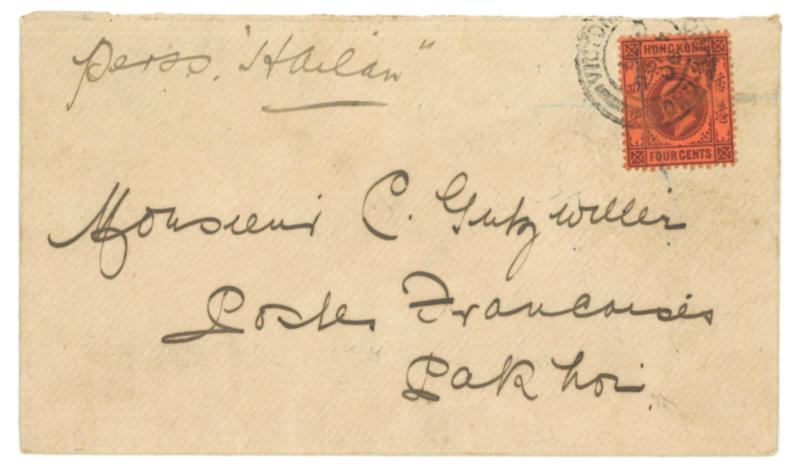 per ss. "Hailan"
VICTORIA
HONG KONG
FOUR CENTS
Monsieur C. Gutzwiller
Postes Francaises
Pakhoi.